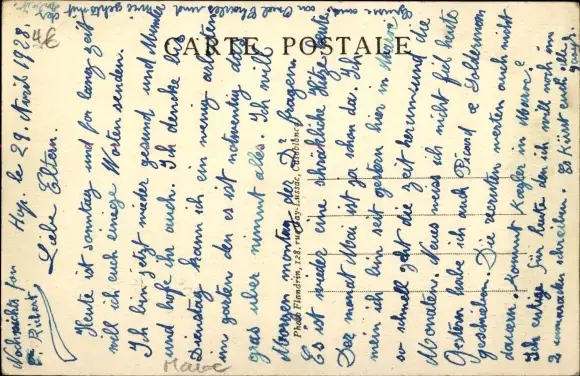 CARTE POSTALE
4€
Maroc
Photo Flandrin, 128, rue Gay-Lussac, Casablanca
Hyp. le 29. April 1928.
Liebe Eltern.
Heute ist sonntag und for lang zeit
will ich euch einege Worten senden.
Ich bin jetzt wieder gesund und Munder
und hofe ihr auch. Ich dencke bis
Dinstag kann ich ein wenig arbeiten
im garten den es ist notwendig das
gras uber nimmt alles. Ich will
Morgen montag den Dr fragen.
Es ist wieder eine schrekliche Hitze heute
Der monat Mai ist ja schon da. Ich
mein ich bin seit gestern hier in Meuror
so schnell geht die zeit herum und die
Monaten. Neues weis ich nicht fiel heute
Gestern habe ich auch Picard &
geschieben. Die recruten werten auch nicht
dauern. kommt Kugler in
Ich endige fur heute den ich will noch an
2 cumarade schreiben. Es Küsst euch alle
Grüsse aus an Onkel Charles und